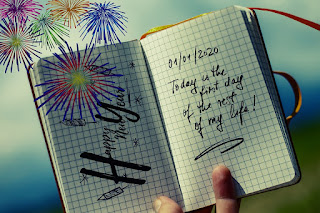 Happy
New
Year
01/01/2020
Today is the
first day
of the rest
of my life!